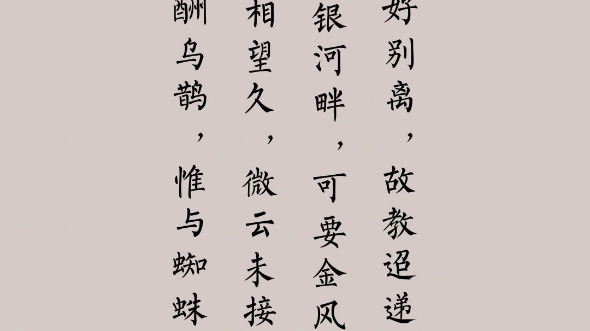 好别离，故教迢递
银河畔，可要金风
相望久，微云未接
酬乌鹊，惟与蜘蛛